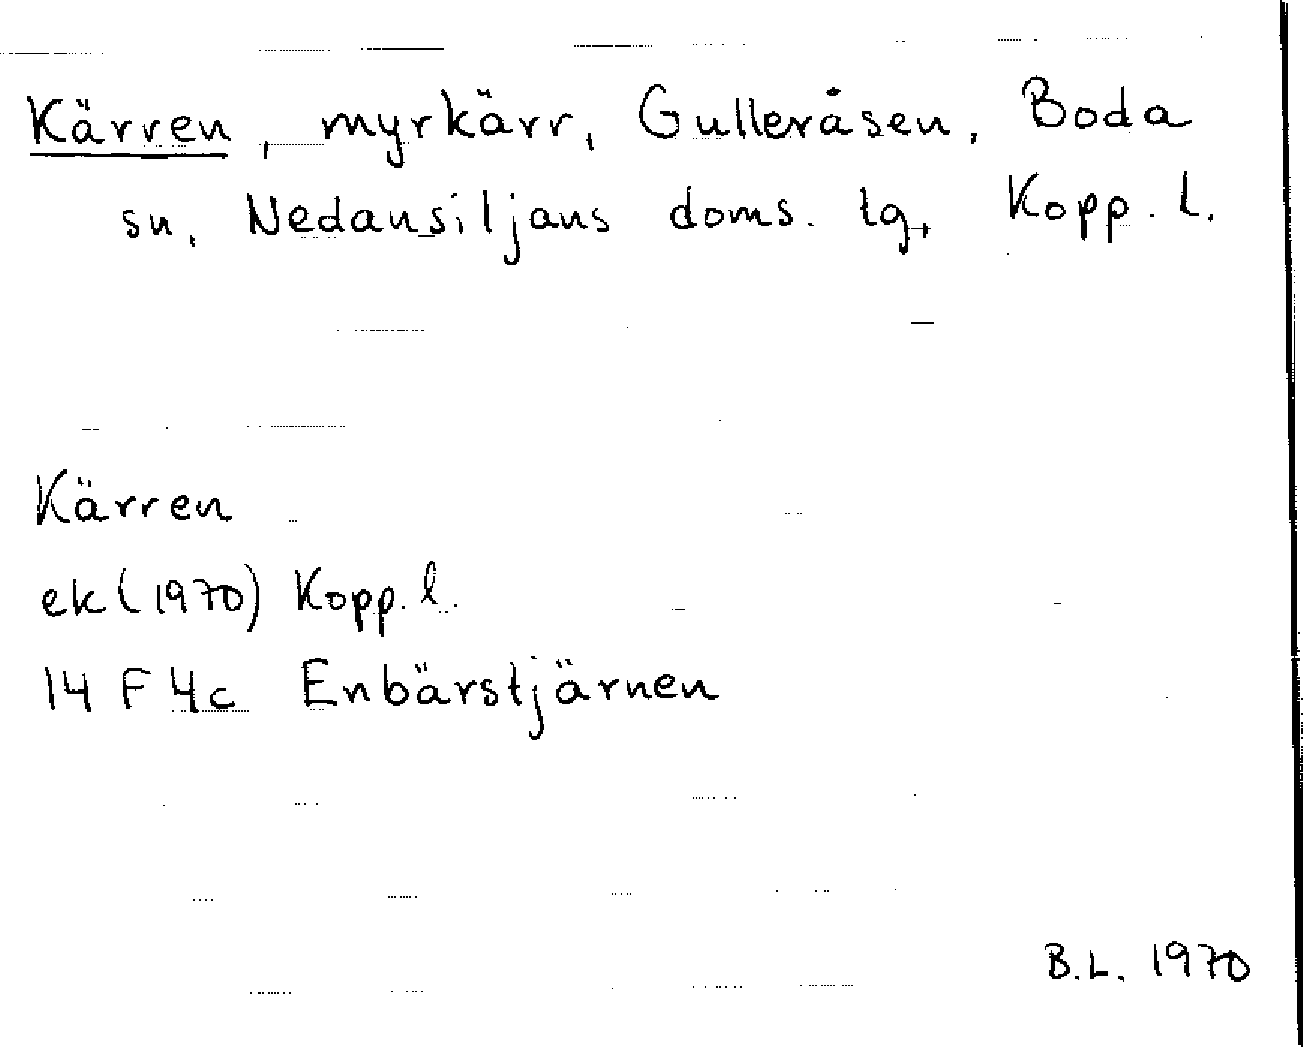 Kärren, myrkärr, Gulleråsen, Boda
sn, Nedansiljans doms. tg, Kopp. l.
Kärren
ek (1970) Kopp. l.
14 F 4c Enbärstjärnen
B.L. 1970